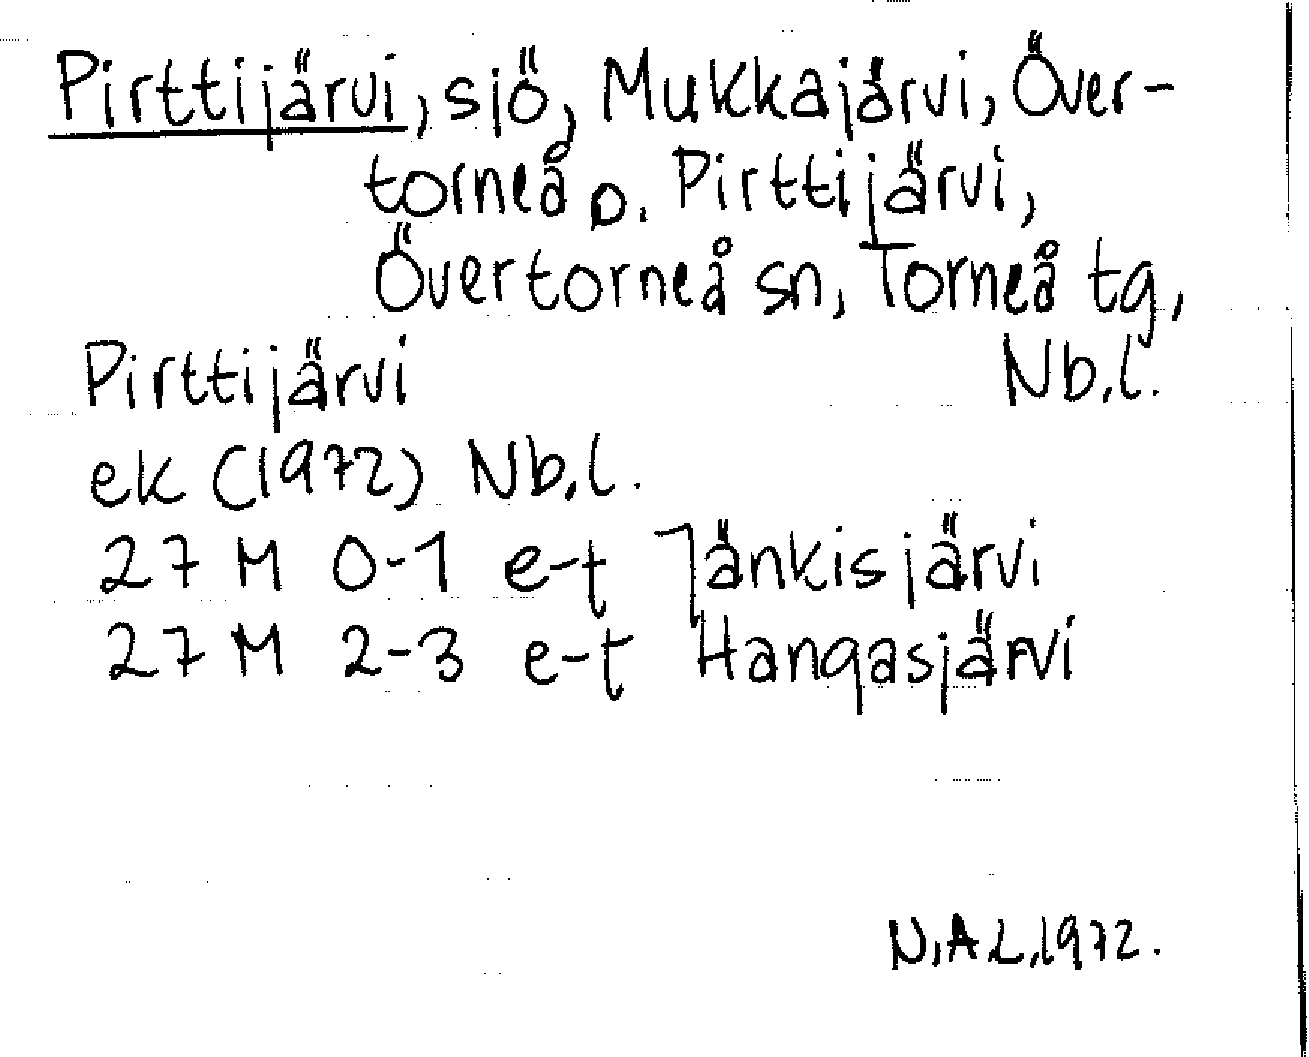 Pirttijärvi, sjö, Mukkajärvi, Över-
torneå o. Pirttijärvi,
Övertorneå sn, Torneå tg,
Pirttijärvi Nb.l.
ek (1972) Nb.l.
27 M 0-1 e-t Jänkisjärvi
27 M 2-3 e-t Hangasjärvi
N.A L.1972.